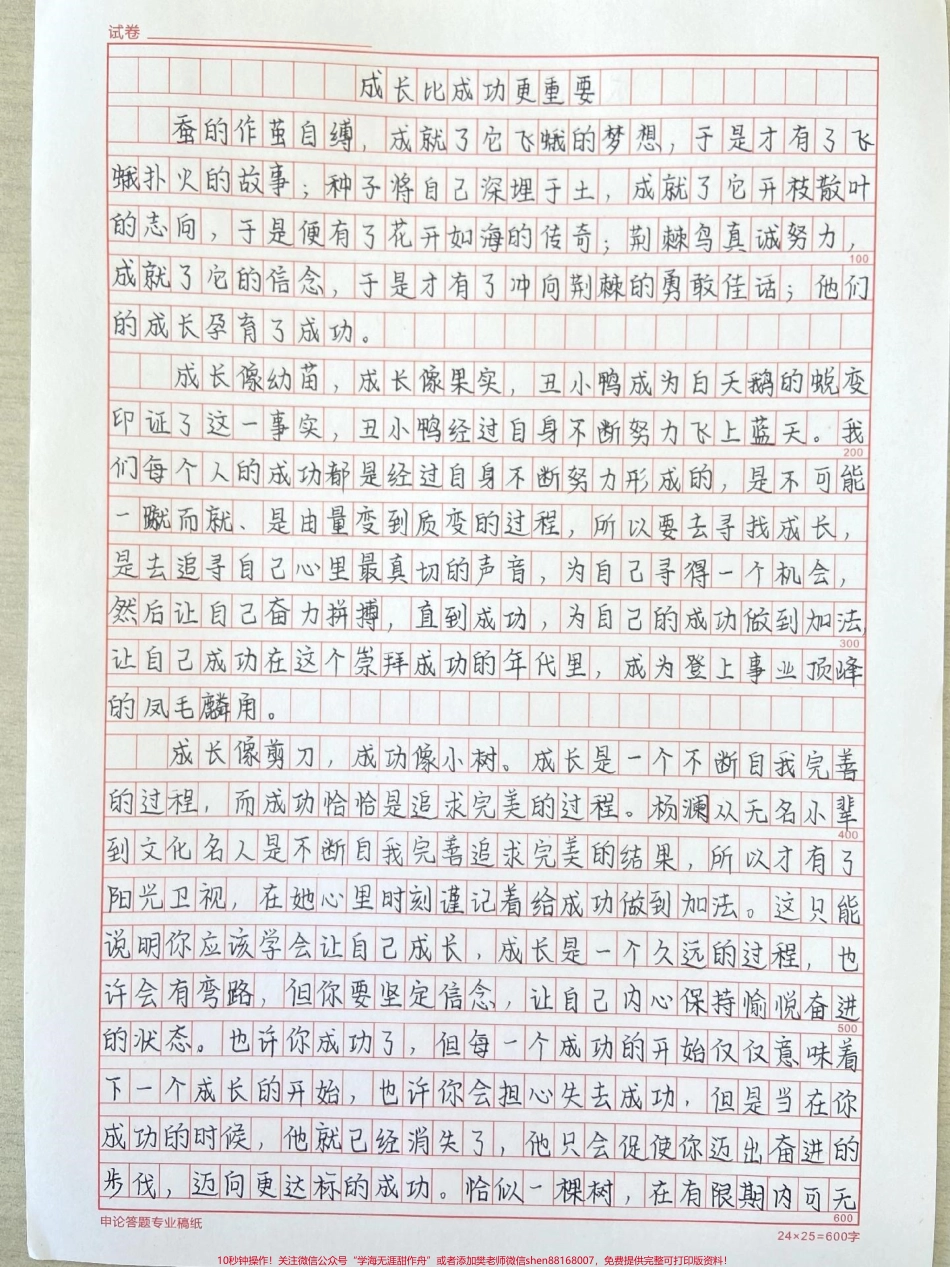 试卷
成长比成功更重要
蚕的作茧自缚，成就了它飞蛾的梦想，于是才有了飞
蛾扑火的故事；种子将自己深埋于土，成就了它开枝散叶
的志向，于是便有了花开如海的传奇；荆棘鸟真诚努力，
100
成就了它的信念，于是才有了冲向荆棘的勇敢佳话；他们
的成长孕育了成功。
成长像幼苗，成长像果实，丑小鸭成为白天鹅的蜕变
印证了这一事实，丑小鸭经过自身不断努力飞上蓝天。我
200
们每个人的成功都是经过自身不断努力形成的，是不可能
一蹴而就、是由量变到质变的过程，所以要去寻找成长，
是去追寻自己心里最真切的声音，为自己寻得一个机会，
然后让自己奋力拼搏，直到成功，为自己的成功做到加法，
300
让自己成功在这个崇拜成功的年代里，成为登上事业顶峰
的凤毛麟角。
成长像剪刀，成功像小树。成长是一个不断自我完善
的过程，而成功恰恰是追求完美的过程。杨澜从无名小辈
400
到文化名人是不断自我完善追求完美的结果，所以才有了
阳光卫视，在她心里时刻谨记着给成功做到加法。这只能
说明你应该学会让自己成长，成长是一个久远的过程，也
许会有弯路，但你要坚定信念，让自己内心保持愉悦奋进
500
的状态。也许你成功了，但每一个成功的开始仅仅意味着
下一个成长的开始，也许你会担心失去成功，但是当在你
成功的时候，他就已经消失了，他只会促使你迈出奋进的
步伐，迈向更达标的成功。恰似一棵树，在有限期内可无
600
申论答题专业稿纸
24×25=600字
10秒钟操作！关注微信公众号“学海无涯甜作舟”或者添加樊老师微信shen88168007，免费提供完整可打印版资料！